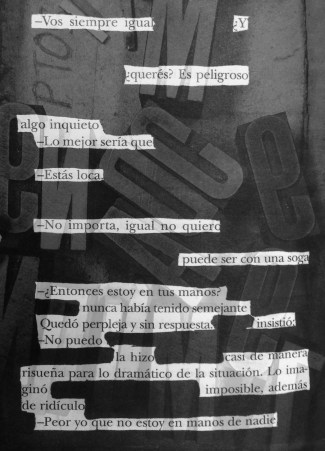 –Vos siempre igual ¿Y
¿querés? Es peligroso
algo inquieto
–Lo mejor sería que
–Estás loca.
–No importa, igual no quiero
puede ser con una soga
–¿Entonces estoy en tus manos?
nunca había tenido semejante
Quedó perpleja y sin respuesta. insistió:
–No puedo
la hizo casi de manera
risueña para lo dramático de la situación. Lo ima-
ginó imposible, además
de ridículo
–Peor yo que no estoy en manos de nadie